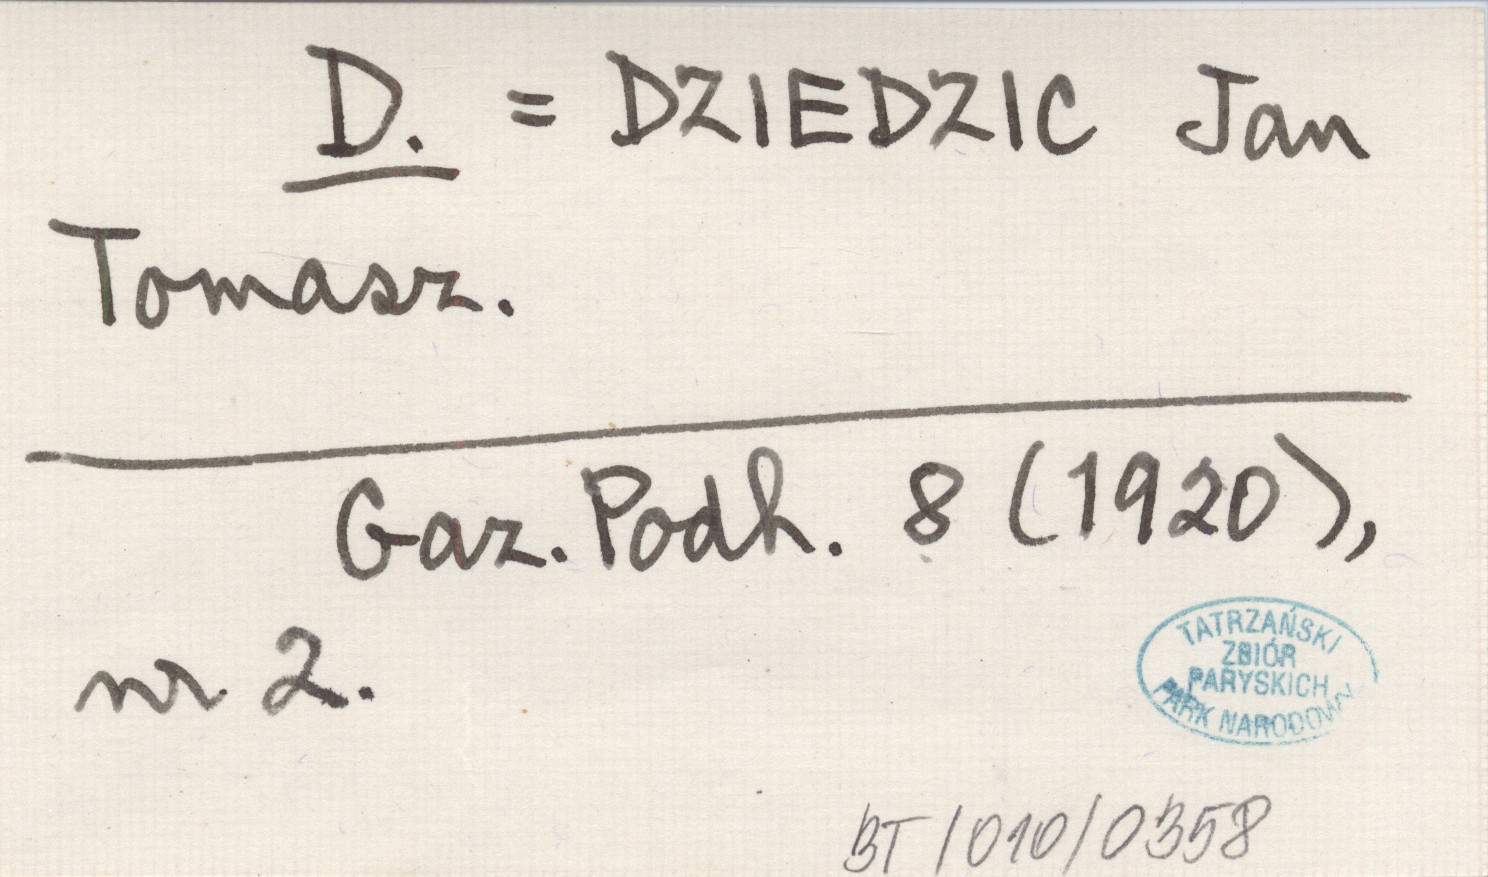 D. = DZIEDZIC Jan
Tomasz.
Gaz. Podh. 8 (1920),
nr 2.
TATRZAŃSKI
ZBIÓR
PARYSKICH
PARK NARODOWY
BT/010/0358